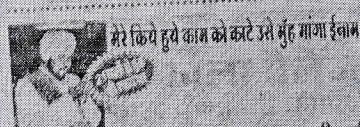 मेरे किये हुये काम को काटे उसे मुँह मांगा ईनाम